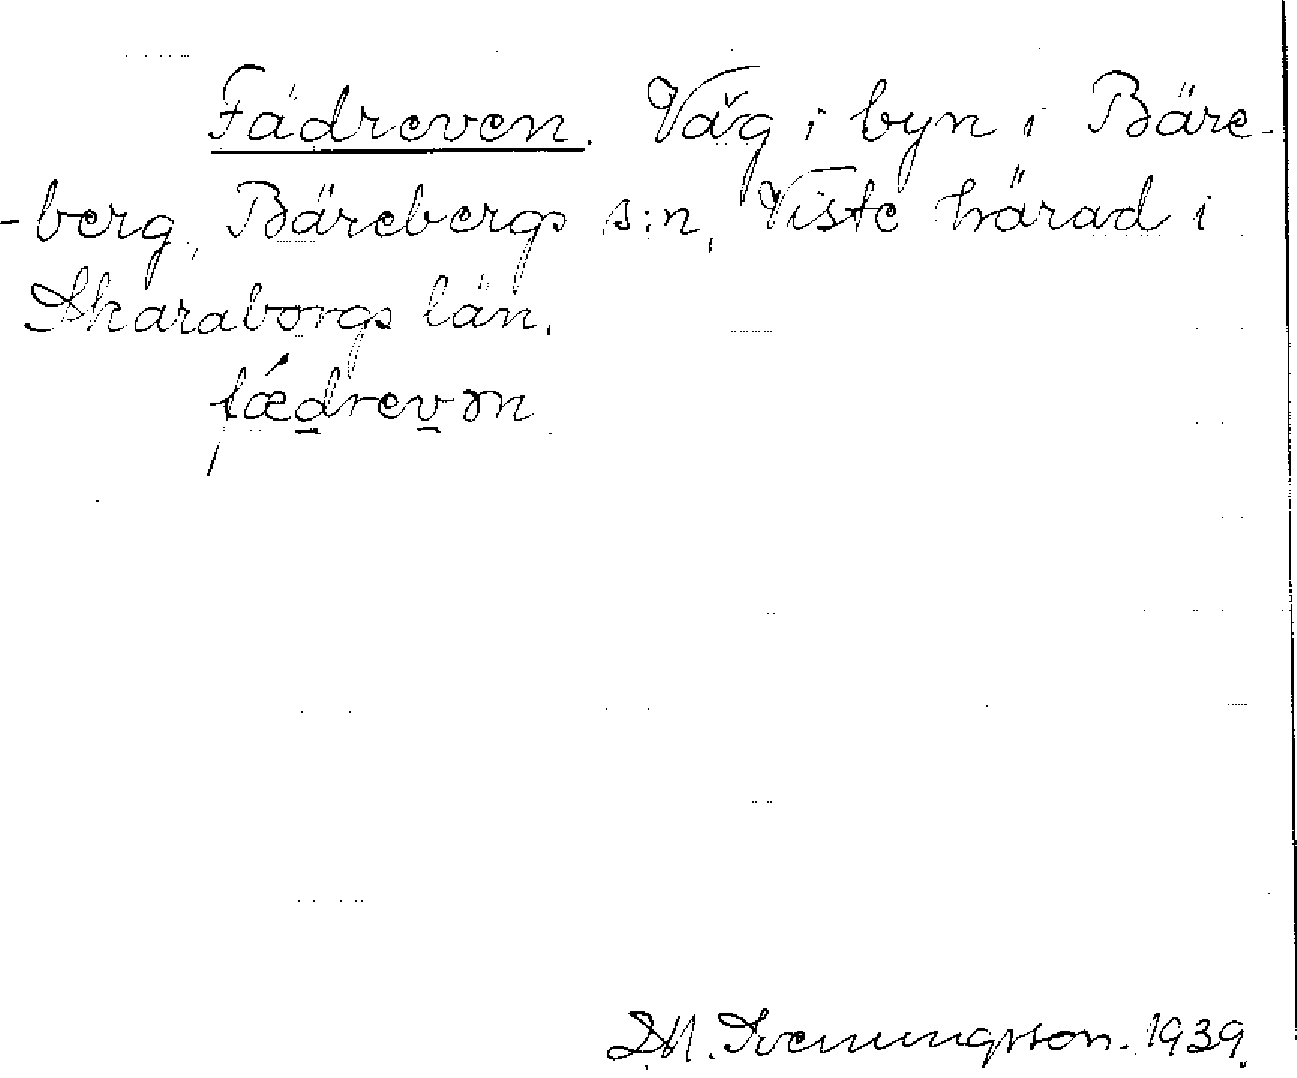 Fädreven. Väg i byn i Bäre-
-berg, Bärebergs s:n, Viste härad i
Skaraborgs län.
fǽdrevən
Svenungsson. 1939.